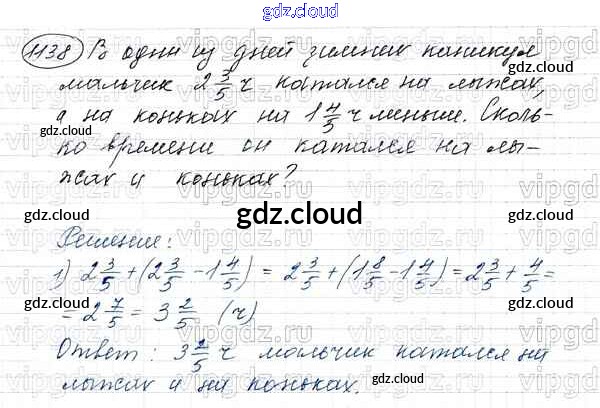 gdz.cloud
1138) В один из дней зимних каникул
мальчик 2 3/5 ч катался на лыжах,
а на коньках на 1 4/5 ч меньше. Сколь-
ко времени он катался на лы-
жах и коньках?
gdz.cloud gdz.cloud
gdz.cloud
gdz.cloud
Решение:
1) 2 3/5 + (2 3/5 - 1 4/5) = 2 3/5 + (1 8/5 - 1 4/5) = 2 3/5 + 4/5 =
= 2 7/5 = 3 2/5 (ч)
gdz.cloud gdz.cloud
Ответ: 3 2/5 ч мальчик катался на
лыжах и на коньках.
gdz.cloud